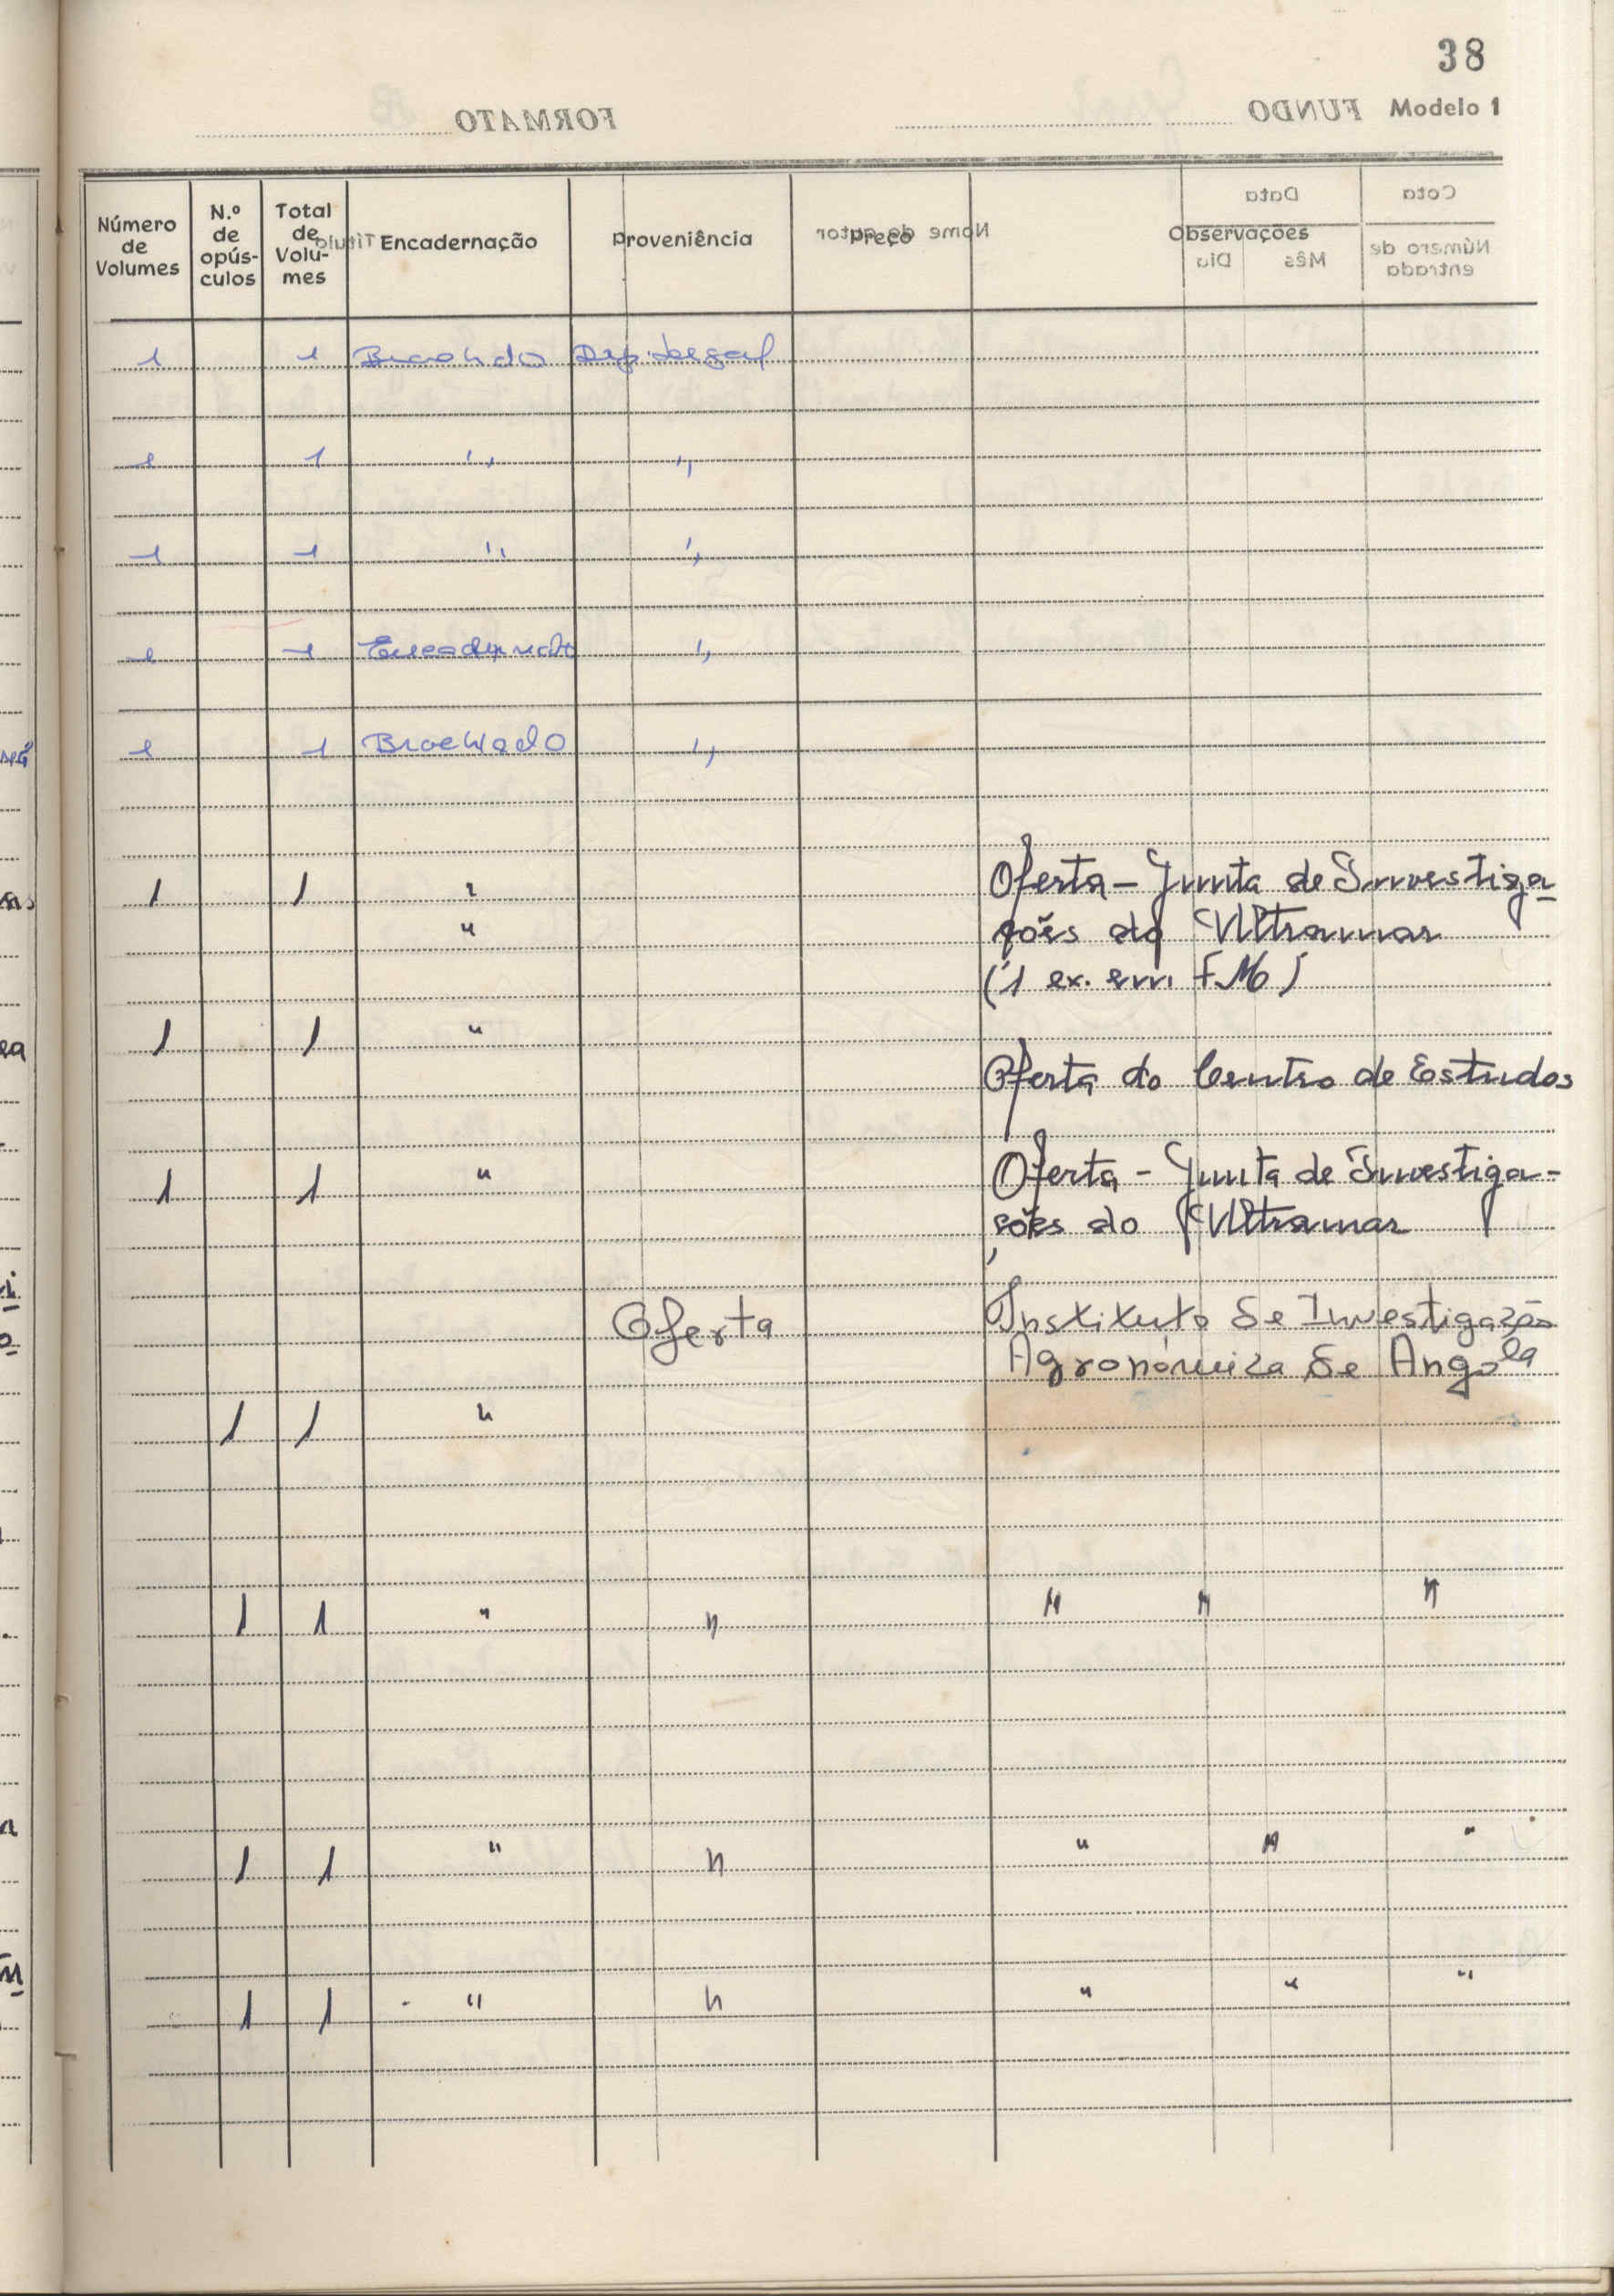 38
Modelo 1
FORMATO
FUNDO
Número de Volumes
N.º de opús-culos
Total de Volu-mes
Encadernação
Proveniência
Preço
Observações
Título
Nome do autor
Data
Dia Mês
Cota
Número de entrada
1 1 Brochado Dep. Legal
1 1 " "
1 1 " "
1 1 Encadernado "
1 1 Brochado "
1 1 " Oferta - Junta de Investiga-
" ções do Ultramar
(1 ex. em FM)
1 1 "
Oferta do Centro de Estudos
1 1 " Oferta - Junta de Investiga-
ções do Ultramar
Oferta Instituto de Investigação
Agronómica de Angola
1 1 "
1 1 " " " " "
1 1 " " " " "
1 1 " " " " "